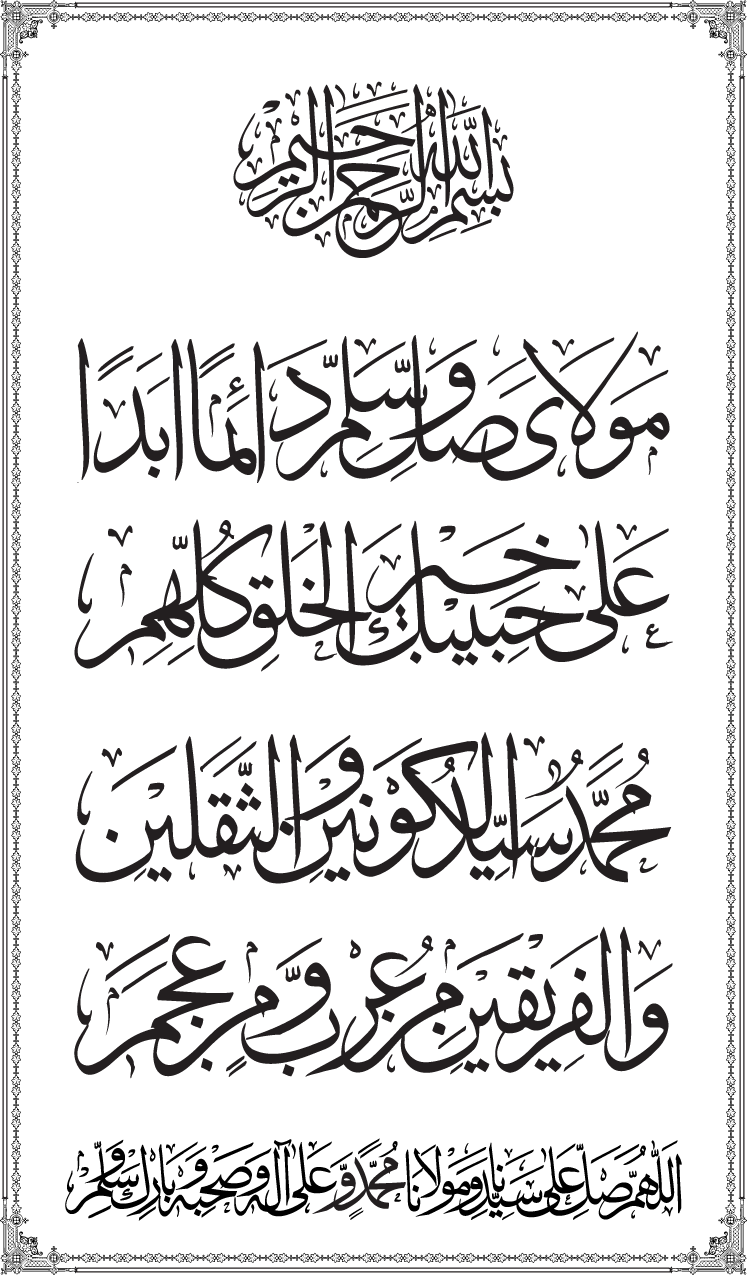 بسم الله الرحمن الرحيم
مَولَاىَ صَلِّ وَسَلِّم دَائِمًا اَبَدًا
عَلىٰ حَبِيبِكَ خَيرِ الخَلقِ كُلِّهِم
مُحَمَّدٌ سَيِّدُ الكَونَينِ وَالثَّقَلَينِ
وَالفَرِيقَينِ مِن عُربٍ وَّمِن عَجَمٍ
اَللّٰهُمَّ صَلِّ عَلىٰ سَيِّدِنَا وَمَولَانَا مُحَمَّدٍ وَّعَلىٰ آلِهٖ وَصَحبِهٖ وَبَارِك وَسَلِّم